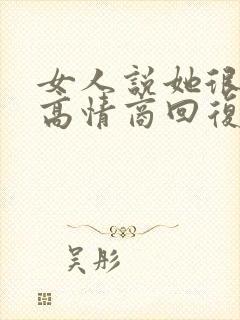 女人說她很
高情商回復
吳彤